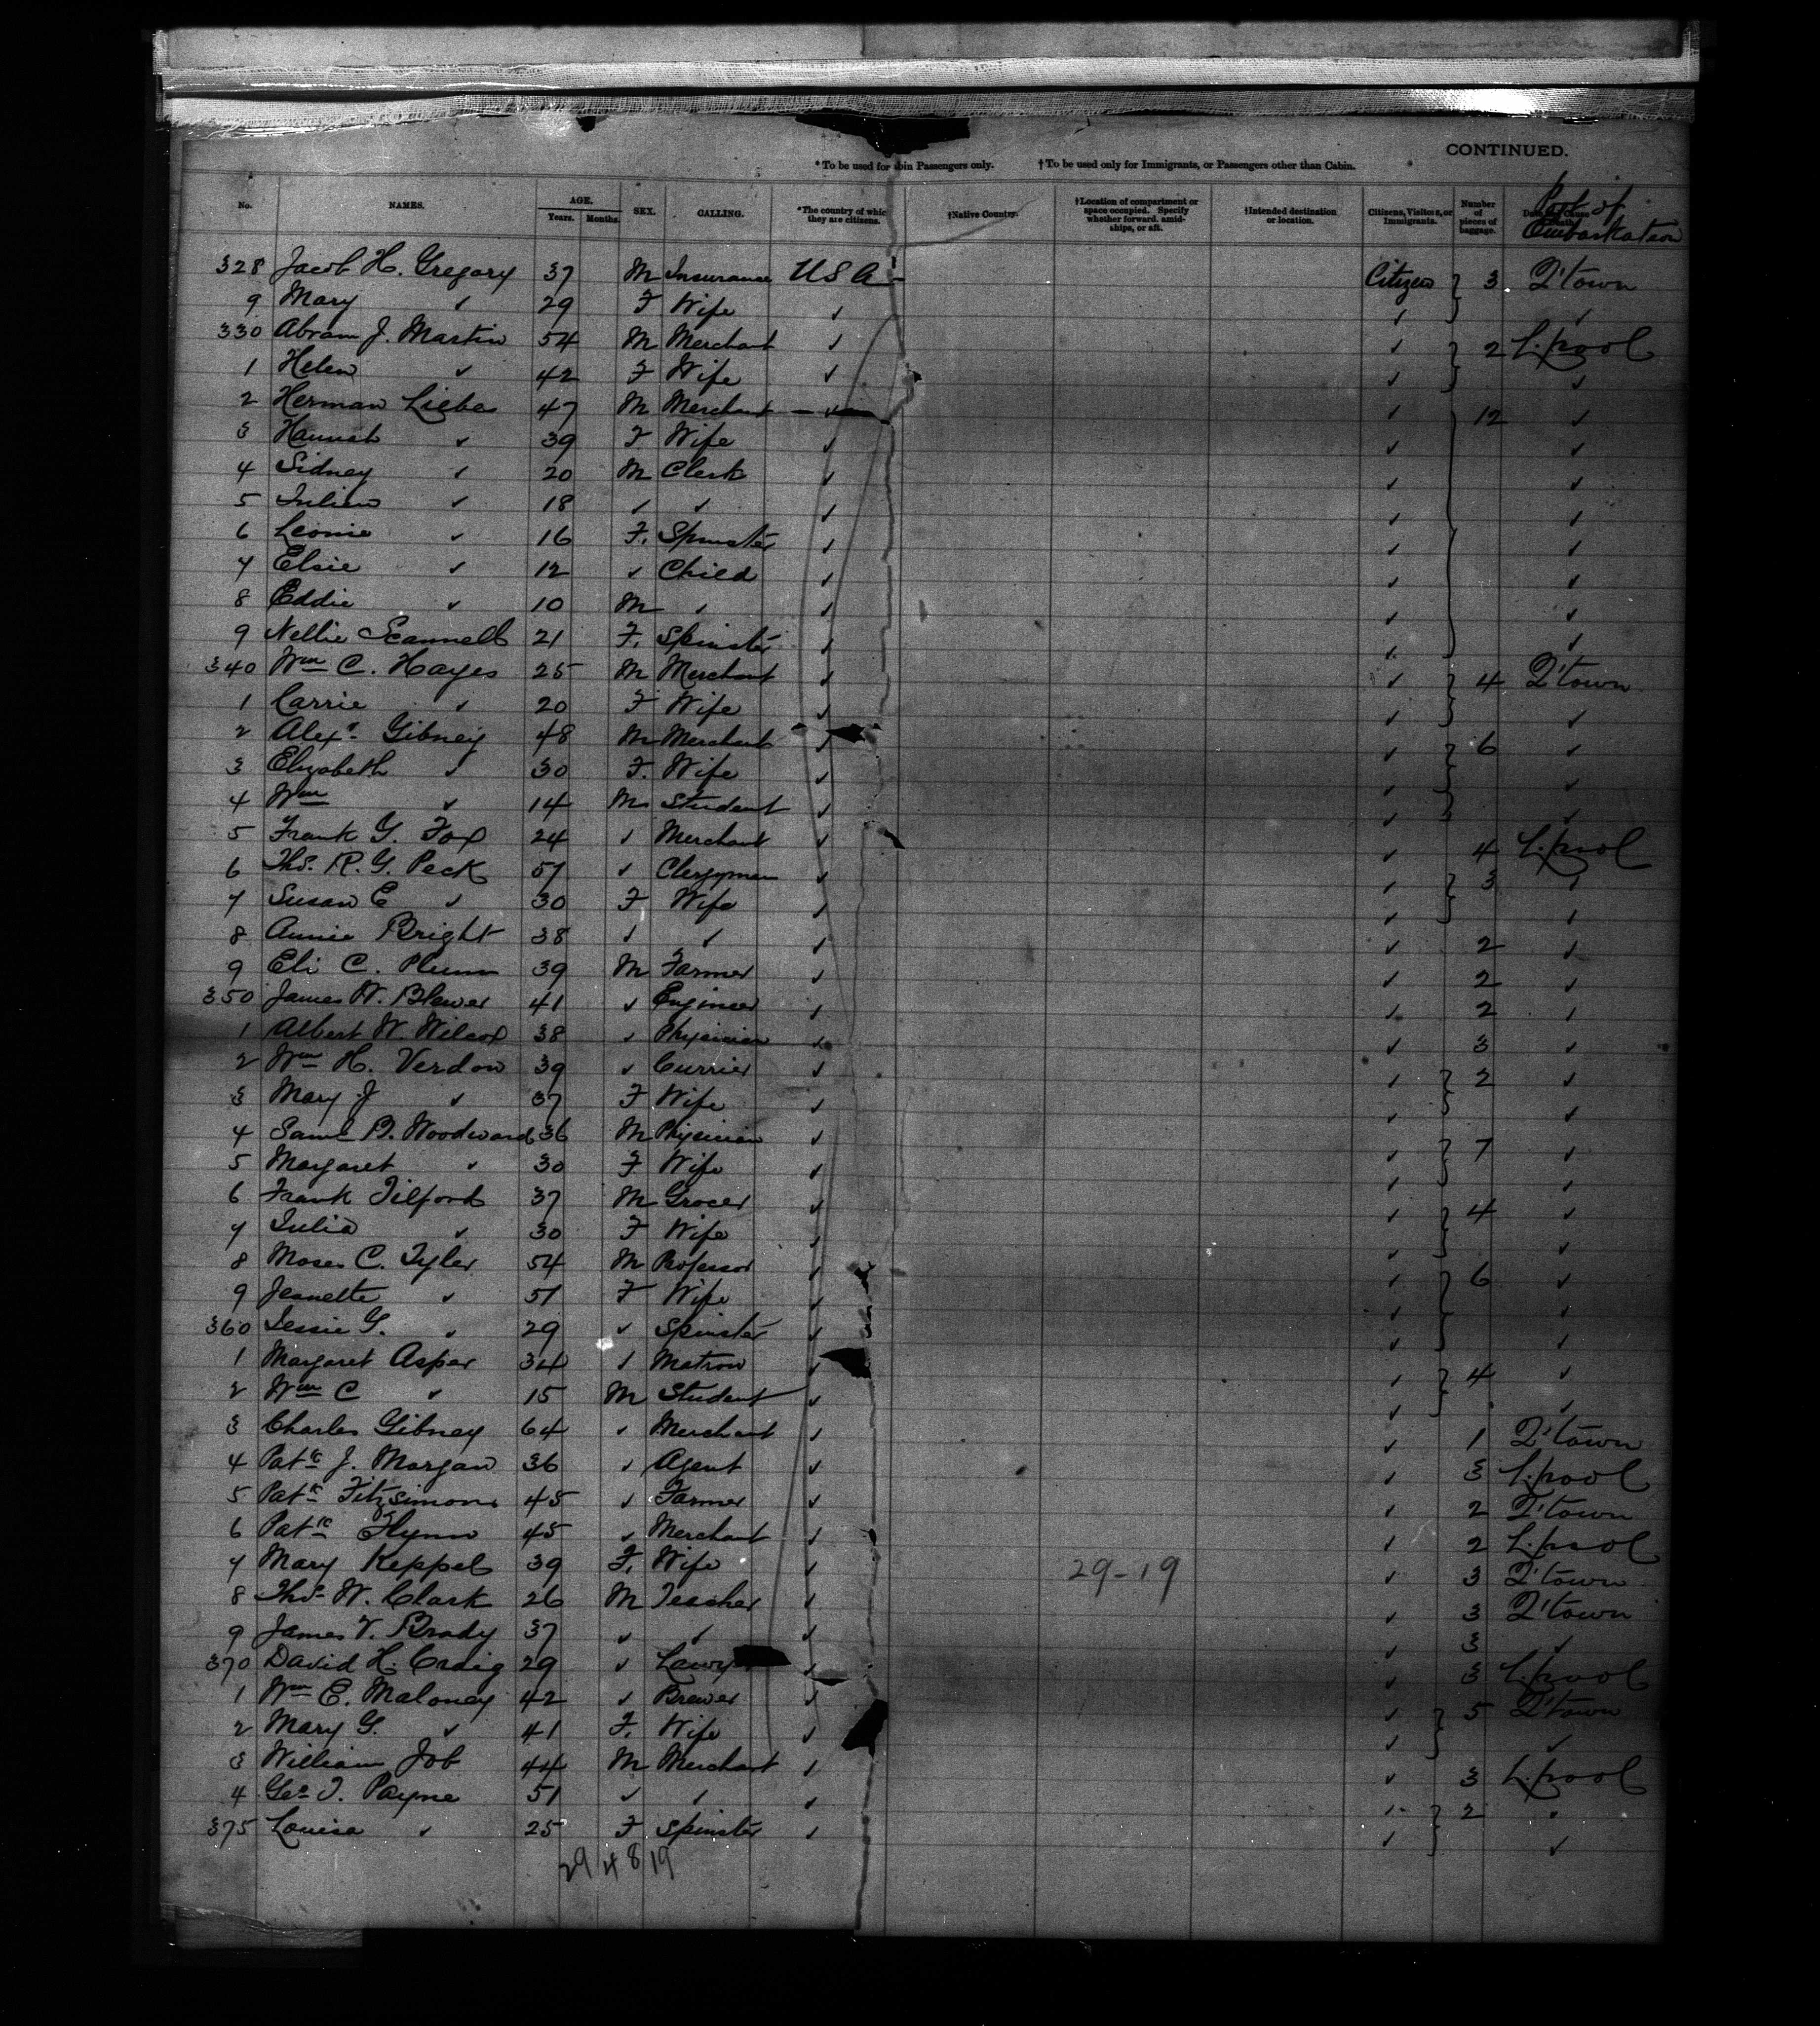 CONTINUED.
* To be used for abin Passengers only. † To be used only for Immigrants, or Passengers other than Cabin.
No. NAMES. AGE. Years. Months. SEX. CALLING. *The country of which they are citizens. †Native Country. †Location of compartment or space occupied. Specify whether forward, amidships, or aft. †Intended destination or location. Citizens, Visitors, or Immigrants. Number of pieces of baggage. Port of Embarkation
328 Jacob H. Gregory 37 M Insurance U S A Citizen } 3 Q'town
9 Mary ✓ 29 F Wife ✓ ✓ ✓
330 Abram J. Martin 54 M Merchant ✓ ✓ } 2 L.pool
1 Helen ✓ 42 F Wife ✓ ✓ ✓
2 Herman Liebes 47 M Merchant ✓ ✓ } 12 ✓
3 Hannah ✓ 39 F Wife ✓ ✓ ✓
4 Sidney ✓ 20 M Clerk ✓ ✓ ✓
5 Julien ✓ 18 ✓ ✓ ✓ ✓ ✓
6 Leonie ✓ 16 F. Spinster ✓ ✓ ✓
7 Elsie ✓ 12 ✓ Child ✓ ✓ ✓
8 Eddie ✓ 10 M ✓ ✓ ✓ ✓
9 Nellie Scannell 21 F. Spinster ✓ ✓ ✓
340 Wm C. Hayes 25 M Merchant ✓ ✓ } 4 Q'town
1 Carrie ✓ 20 F Wife ✓ ✓ ✓
2 Alexr Gibney 48 M Merchant ✓ ✓ } 6 ✓
3 Elizabeth ✓ 30 F. Wife ✓ ✓ ✓
4 Wm ✓ 14 M Student ✓ ✓ ✓
5 Frank G. Fox 24 ✓ Merchant ✓ ✓ 4 L.pool
6 Thos. R. G. Peck 57 ✓ Clergyman ✓ ✓ } 3 ✓
7 Susan E ✓ 30 F Wife ✓ ✓ ✓
8 Annie Bright 38 ✓ ✓ ✓ ✓ 2 ✓
9 Eli C. Plumm 39 M Farmer ✓ ✓ 2 ✓
350 James W. Blewer 41 ✓ Engineer ✓ ✓ 2 ✓
1 Albert W. Wilcox 38 ✓ Physician ✓ ✓ 3 ✓
2 Wm H. Verdon 39 ✓ Currier ✓ ✓ } 2 ✓
3 Mary J ✓ 37 F Wife ✓ ✓ ✓
4 Saml B. Woodward 36 M Physician ✓ ✓ } 7 ✓
5 Margaret ✓ 30 F Wife ✓ ✓ ✓
6 Frank Tilford 37 M Grocer ✓ ✓ } 4 ✓
7 Julia ✓ 30 F Wife ✓ ✓ ✓
8 Moses C. Tyler 54 M Professor ✓ ✓ } 6 ✓
9 Jeanette ✓ 51 F Wife ✓ ✓ ✓
360 Jessie G. ✓ 29 ✓ Spinster ✓ ✓ ✓
1 Margaret Asper 34 ✓ Matron ✓ ✓ } 4 ✓
2 Wm C ✓ 15 M Student ✓ ✓ ✓
3 Charles Gibney 64 ✓ Merchant ✓ ✓ 1 Q'town
4 Patk J. Morgan 36 ✓ Agent ✓ ✓ 3 L.pool
5 Patk Fitzsimons 45 ✓ Farmer ✓ ✓ 2 Q'town
6 Patk Flynn 45 ✓ Merchant ✓ ✓ 2 L.pool
7 Mary Keppel 39 F. Wife ✓ 29-19 ✓ 3 Q'town
8 Thos. W. Clark 26 M Teacher ✓ ✓ 3 Q'town
9 James V. Brady 37 ✓ ✓ ✓ ✓ 3 ✓
370 David H. Craig 29 ✓ Lawyer ✓ ✓ 3 L.pool
1 Wm E. Maloney 42 ✓ Brewer ✓ ✓ } 5 Q'town
2 Mary G. ✓ 41 F. Wife ✓ ✓ ✓
3 William Job 44 M Merchant ✓ ✓ 3 L.pool
4 Geo J. Payne 51 ✓ ✓ ✓ ✓ } 2 ✓
375 Louisa ✓ 25 F Spinster ✓ ✓ ✓
29 / 4 8 / 19